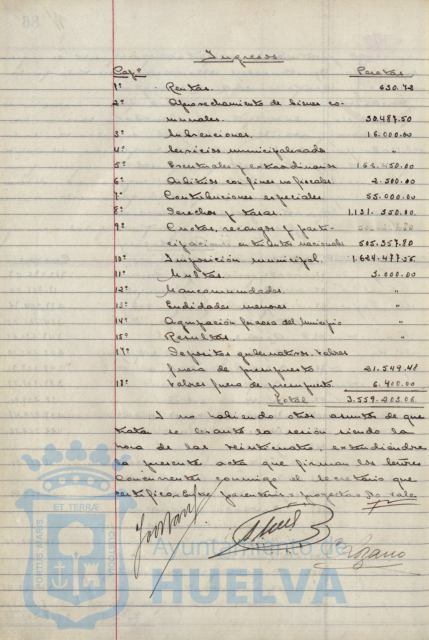 Ingresos
Capº Pesetas
1º Rentas. 630.72
2º Aprovechamiento de bienes co-
munales. 30.487.50
3º Subvenciones. 16.000.00
4º Servicios municipalizados "
5º Eventuales y extraordinarios 162.450.00
6º Arbitrios con fines no fiscales. 2.500.00
7º Contribuciones especiales. 55.000.00
8º Derechos y tasas. 1.131.350.00
9º Cuotas, recargos y parti-
cipaciones en tributos nacionales 505.357.80
10º Imposición municipal. 1.624.477.56
11º Multas. 3.000.00
12º Mancomunidades. "
13º Entidades menores "
14º Agrupación forzosa del Municipio "
15º Resultas. "
17º Depósitos gubernativos. Valores
fuera de presupuesto 21.549.48
18º Valores fuera de presupuesto 6.400.00
Total 3.559.203.06
Y no habiendo otros asuntos de que
tratar se levantó la sesión siendo la
hora de las veinticuatro, extendiéndose
la presente acta que firman los señores
Concurrentes conmigo el Secretario que
certifico. Entre parentesis = = No vale
Lozano
PORTUS MARIS ET TERRAE CUSTODIA
Ayuntamiento de
HUELVA